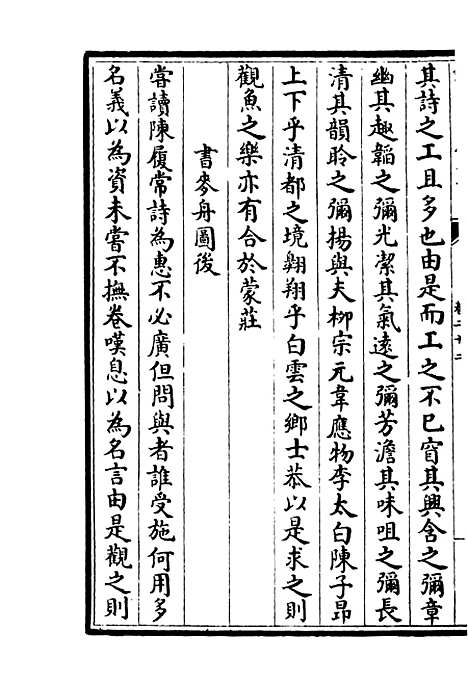 其詩之工且多也由是而工之不已窅其興含之彌章
幽其趣韜之彌光潔其氣遠之彌芳澹其味咀之彌長
清其韻聆之彌揚與夫栁宗元韋應物李太白陳子昻
上下乎清都之境翺翔乎白雲之鄉士恭以是求之則
觀魚之樂亦有合於蒙莊
書麥舟圖後
嘗讀陳履常詩為惠不必廣但問與者誰受施何用多
名義以為資未嘗不撫卷嘆息以為名言由是觀之則